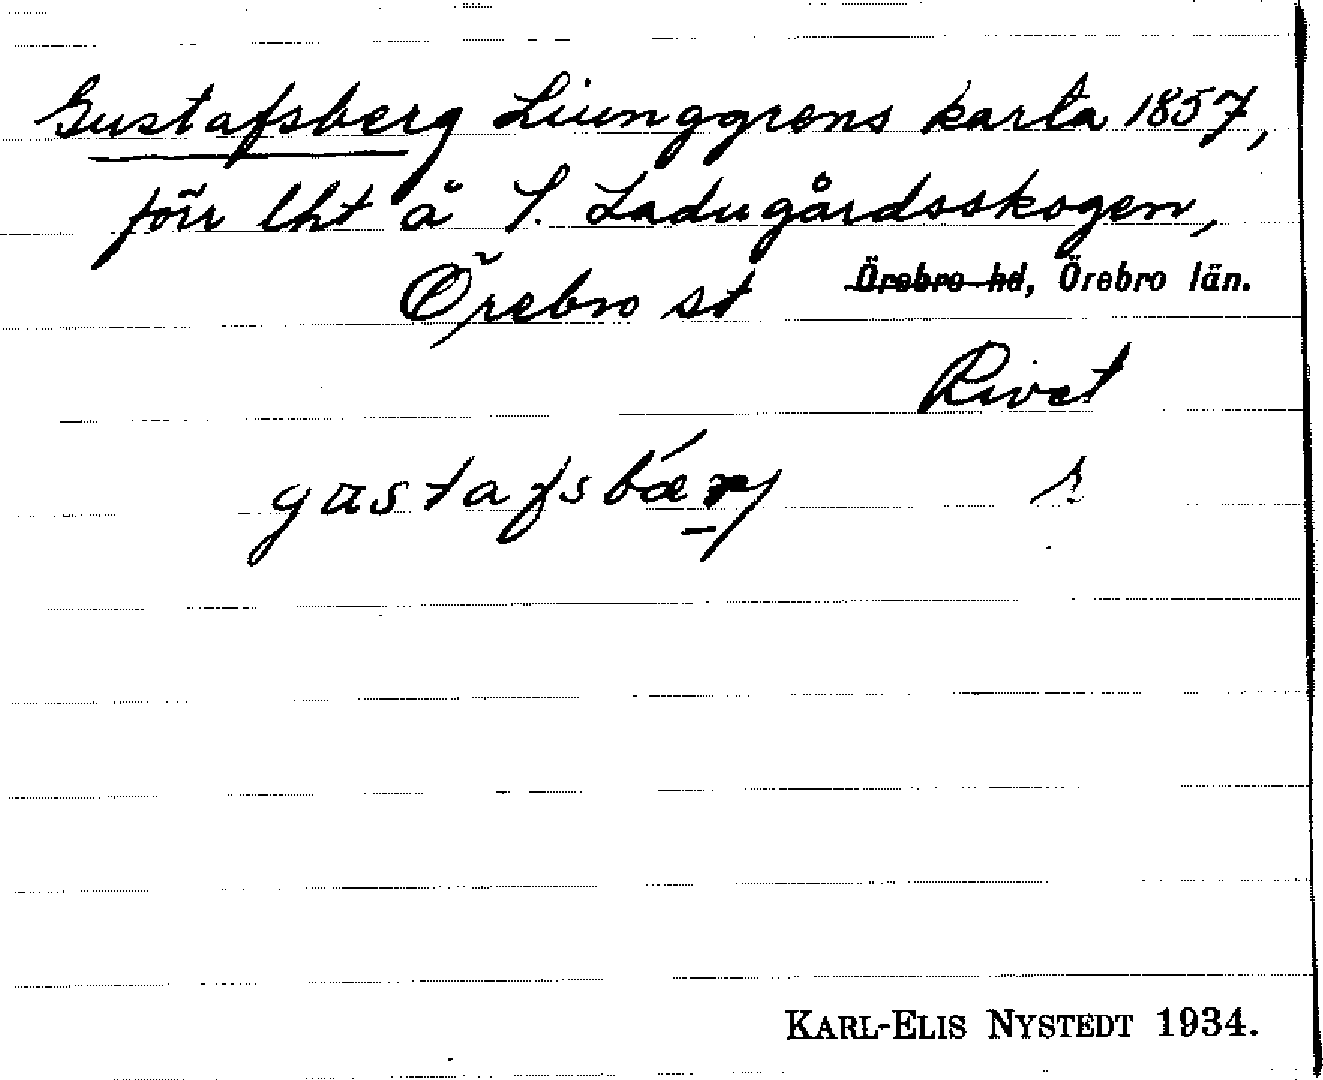 Gustafsberg Liunggrens karta 1857,
förr lht å S. Ladugårdsskogen,
Örebro st Örebro hd, Örebro län.
Rivet
gustafsbárj s
KARL-ELIS NYSTEDT 1934.